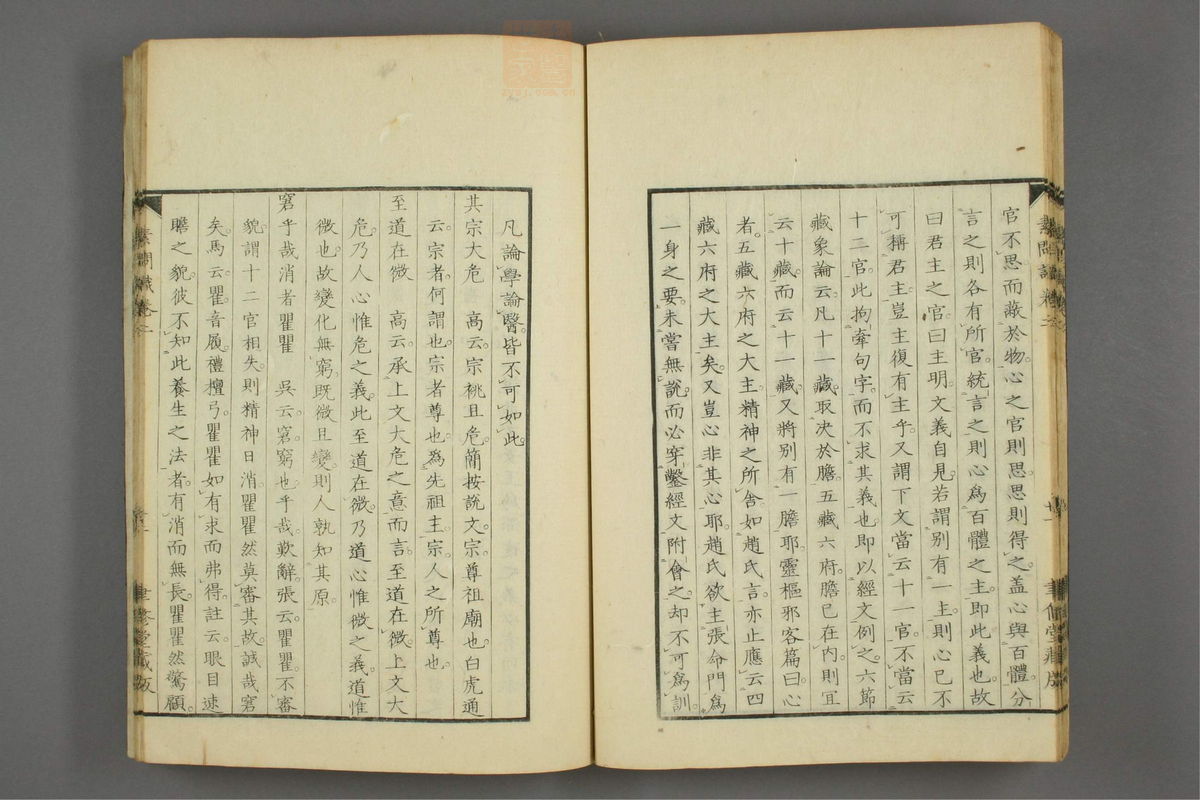 官不思而蔽於物心之官則思思則得之蓋心與百體分
言之則各有所官統言之則心爲百體之主即此義也故
曰君主之官曰主明文義自見若謂別有一主則心已不
可稱君主豈主復有主乎又謂下文當云十一官不當云
十二官此拘牽句字而不求其義也即以經文例之六節
藏象論云凡十一藏取決於膽五藏六府膽已在內則宜
云十藏而云十一藏又將別有一膽耶靈樞邪客篇曰心
者五藏六府之大主精神之所舍如趙氏言亦止應云四
藏六府之大主矣又豈心非其心耶趙氏欲主張命門爲
一身之要未嘗無說而必穿鑿經文附會之却不可爲訓
凡論學論醫皆不可如此
其宗大危 高云宗祧且危簡按說文宗尊祖廟也白虎通
云宗者何謂也宗者尊也爲先祖主宗人之所尊也
至道在微 高云承上文大危之意而言至道在微上文大
危乃人心惟危之義此至道在微乃道心惟微之義道惟
微也故變化無窮既微且變則人孰知其原
窘乎哉消者瞿瞿 吳云窘窮也乎哉歎辭張云瞿瞿不審
貌謂十二官相失則精神日消瞿瞿然莫審其故誠哉窘
矣馬云瞿音屨禮檀弓瞿瞿如有求而弗得註云眼目速
瞻之貌彼不知此養生之法者有消而無長瞿瞿然驚顧
素問識卷二
聿修堂藏版